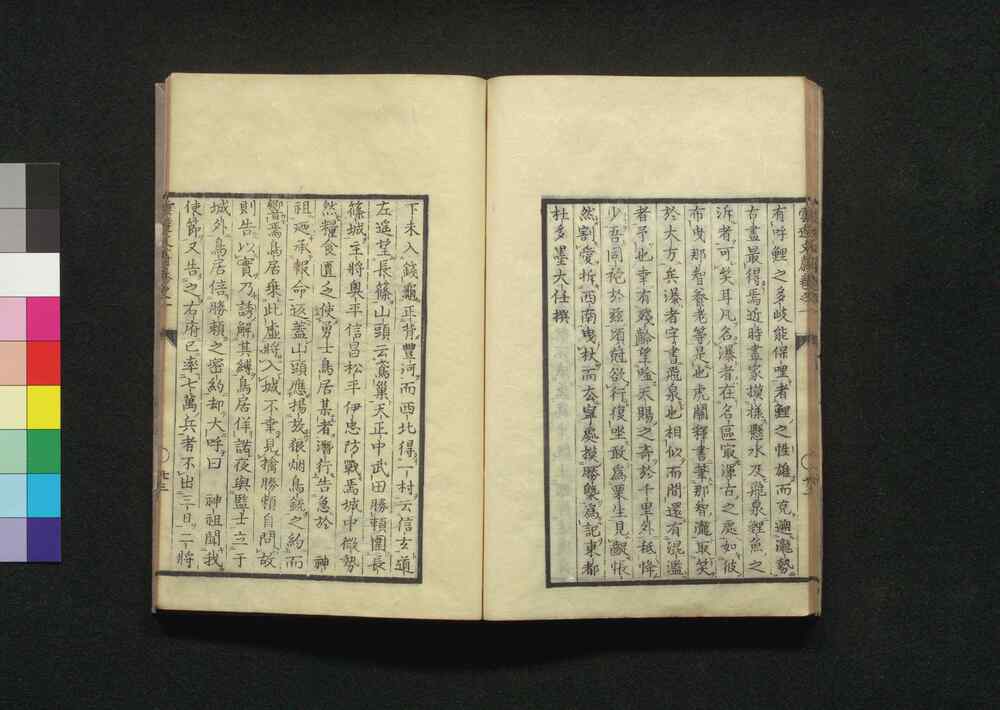 有呼鯉之多岐能保哩者鯉之性雄而克遡瀧勢
古盡最得焉近時畫家摸樣懸水及飛泉鯉魚之
泝者可笑耳凡名瀑者在名區寂渾古之處如彼
布曳那智養老等是也虎關釋書筆那智瀧取笑
於大方矣瀑者字書飛泉也相似而間還有混濫
者予也幸有殘齡望嗑天賜之壽於千里外柢
少吾同袍於茲頌欲行復坐敢爲粟生見
然割愛拆西南曳杖而去寧處摸勝槩爲記東都
杜多墨大任撰
下未入錢龜正背豐河而西北得一村云信玄道
左遙望長篠山頭云鳶巢天正中武田勝頼圍長
篠城主將奥平信昌松平伊忠防戰焉城中微勢
然糧食匱乏使勇士鳥居某者潛行告急於　神
祖乃承報命返蓋山頭應揚放狼烟鳥銃之約而
焉鳥居乘此虛將入城不幸見擒勝頼自問故
則告以實乃誇解其縛鳥居佯諾夜與監士立于
城外鳥居倍勝頼之密約却大呼曰　神祖聞我
使節又告之右府已率七萬兵者不出三日二將